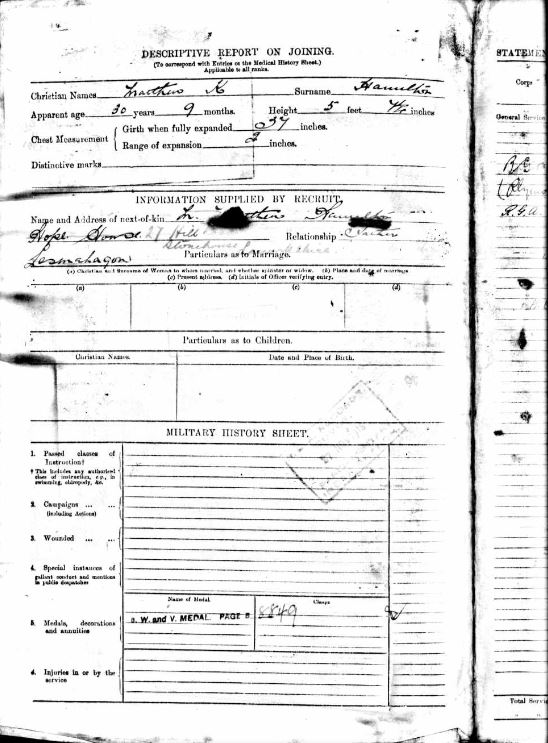 DESCRIPTIVE REPORT ON JOINING.
(To correspond with Entries on the Medical History Sheet.)
Applicable to all ranks.
Christian Names Matthew K Surname Hamilton
Apparent age 30 years 9 months. Height 5 feet inches
Chest Measurement { Girth when fully expanded 37 inches.
Range of expansion 2 inches.
Distinctive marks
INFORMATION SUPPLIED BY RECRUIT.
Name and Address of next-of-kin Matthew Hamilton
Hope House 27 Hill Relationship Father
Stonehouse
Lesmahagow
Particulars as to Marriage.
(a) Christian and Surname of Woman to whom married, and whether spinster or widow. (b) Place and date of marriage
(c) Present address. (d) Initials of Officer verifying entry.
(a) (b) (c) (d)
Particulars as to Children.
Christian Names. Date and Place of Birth.
MILITARY HISTORY SHEET.
1. Passed classes of
Instruction†
† This includes any authorised
class of instruction, e.g., in
swimming, chiropody, &c.
2. Campaigns ... ...
(including Actions)
3. Wounded ... ...
4. Special instances of
gallant conduct and mentions
in public despatches
Name of Medal Clasps
5. Medals, decorations
and annuities
B. W. and V. MEDAL. PAGE 8849
6. Injuries in or by the
service
STATEMEN
Corps
General Service
R.G.A
Total Servi